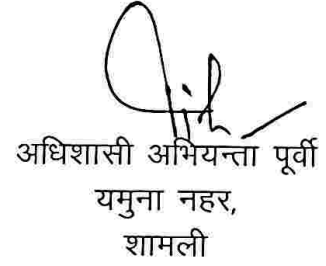 अधिशासी अभियन्ता पूर्वी
यमुना नहर,
शामली